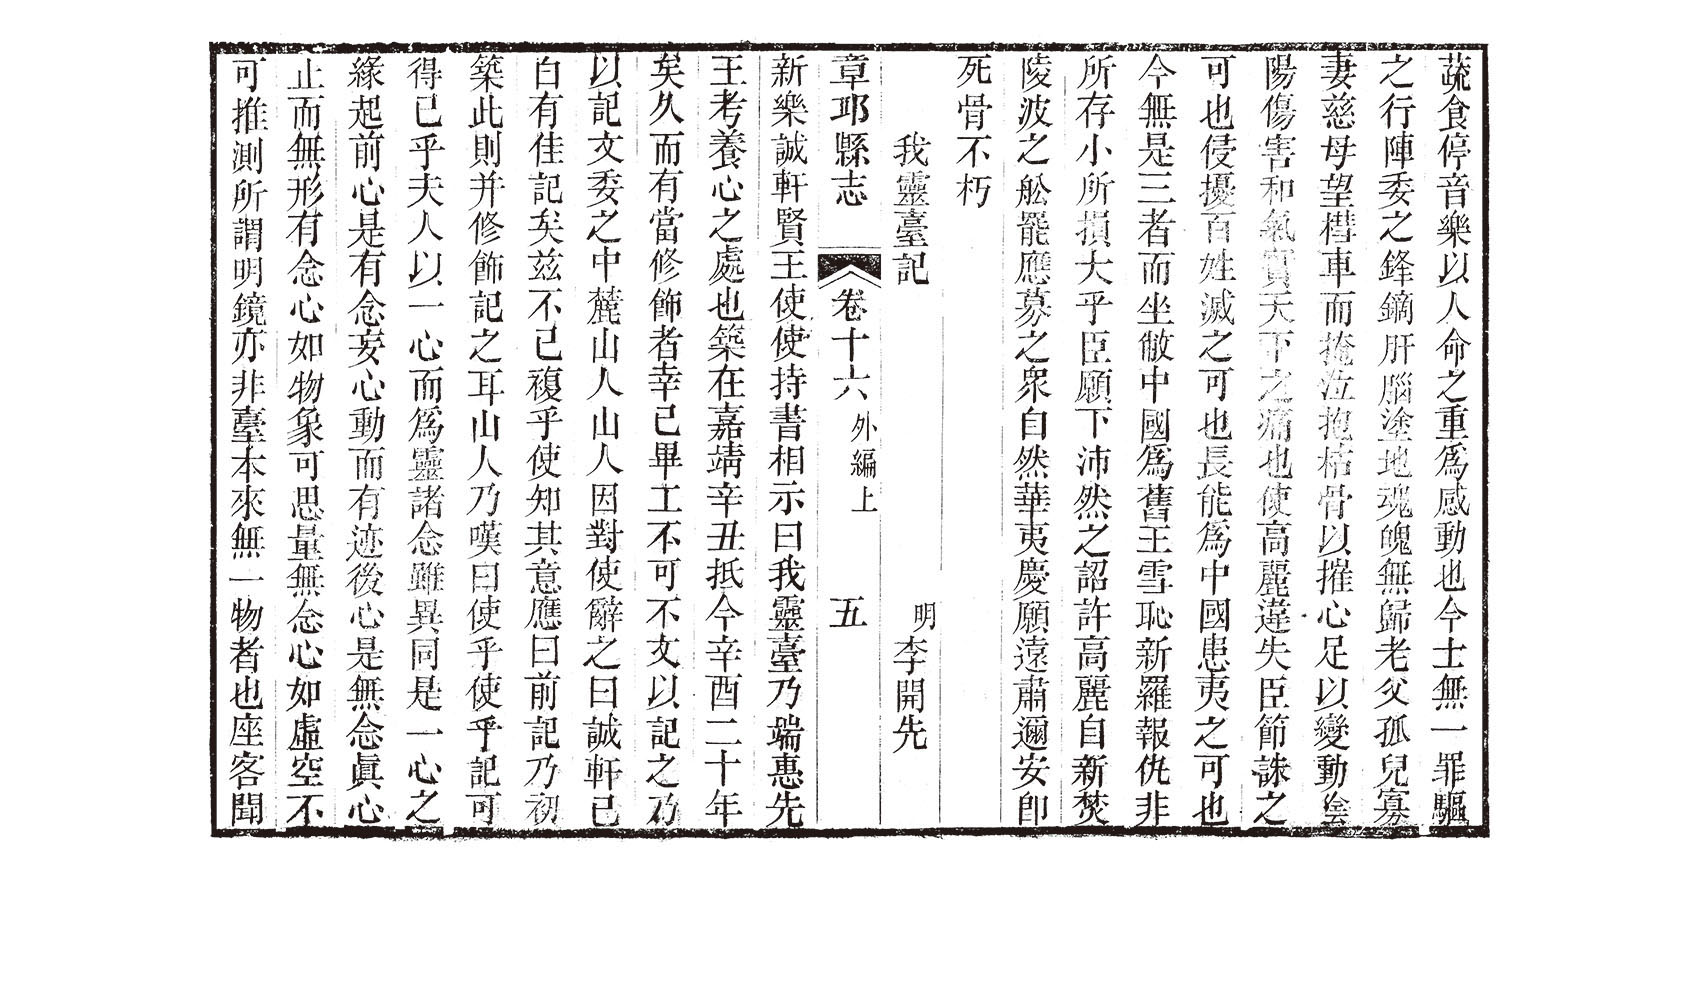 蔬食停音樂以人命之重爲感動也今士無一罪驅
之行陣委之鋒鏑肝腦塗地魂魄無歸老父孤兒寡
妻慈母望槥車而掩泣抱枯骨以摧心足以變動陰
陽傷害和氣實天下之痛也使高麗違失臣節誅之
可也侵擾百姓滅之可也長能爲中國患夷之可也
今無是三者而坐敝中國爲舊王雪恥新羅報仇非
所存小所損大乎臣願下沛然之詔許高麗自新焚
陵波之舩罷應募之衆自然華夷慶願遠肅邇安卽
死骨不朽
我靈臺記
明 李開先
章邱縣志 卷十六 外編上 五
新樂誠軒賢王使使持書相示曰我靈臺乃端惠先
王考養心之處也築在嘉靖辛丑抵今辛酉二十年
矣久而有當修飾者幸已畢工不可不文以記之乃
以記文委之中麓山人山人因對使辭之曰誠軒已
白有佳記矣茲不已複乎使知其意應曰前記乃初
築此則并修飾記之耳山人乃嘆曰使乎使乎記可
得已乎夫人以一心而爲靈諸念雖異同是一心之
緣起前心是有念妄心動而有迹後心是無念眞心
止而無形有念心如物象可思量無念心如虛空不
可推測所謂明鏡亦非臺本來無一物者也座客聞